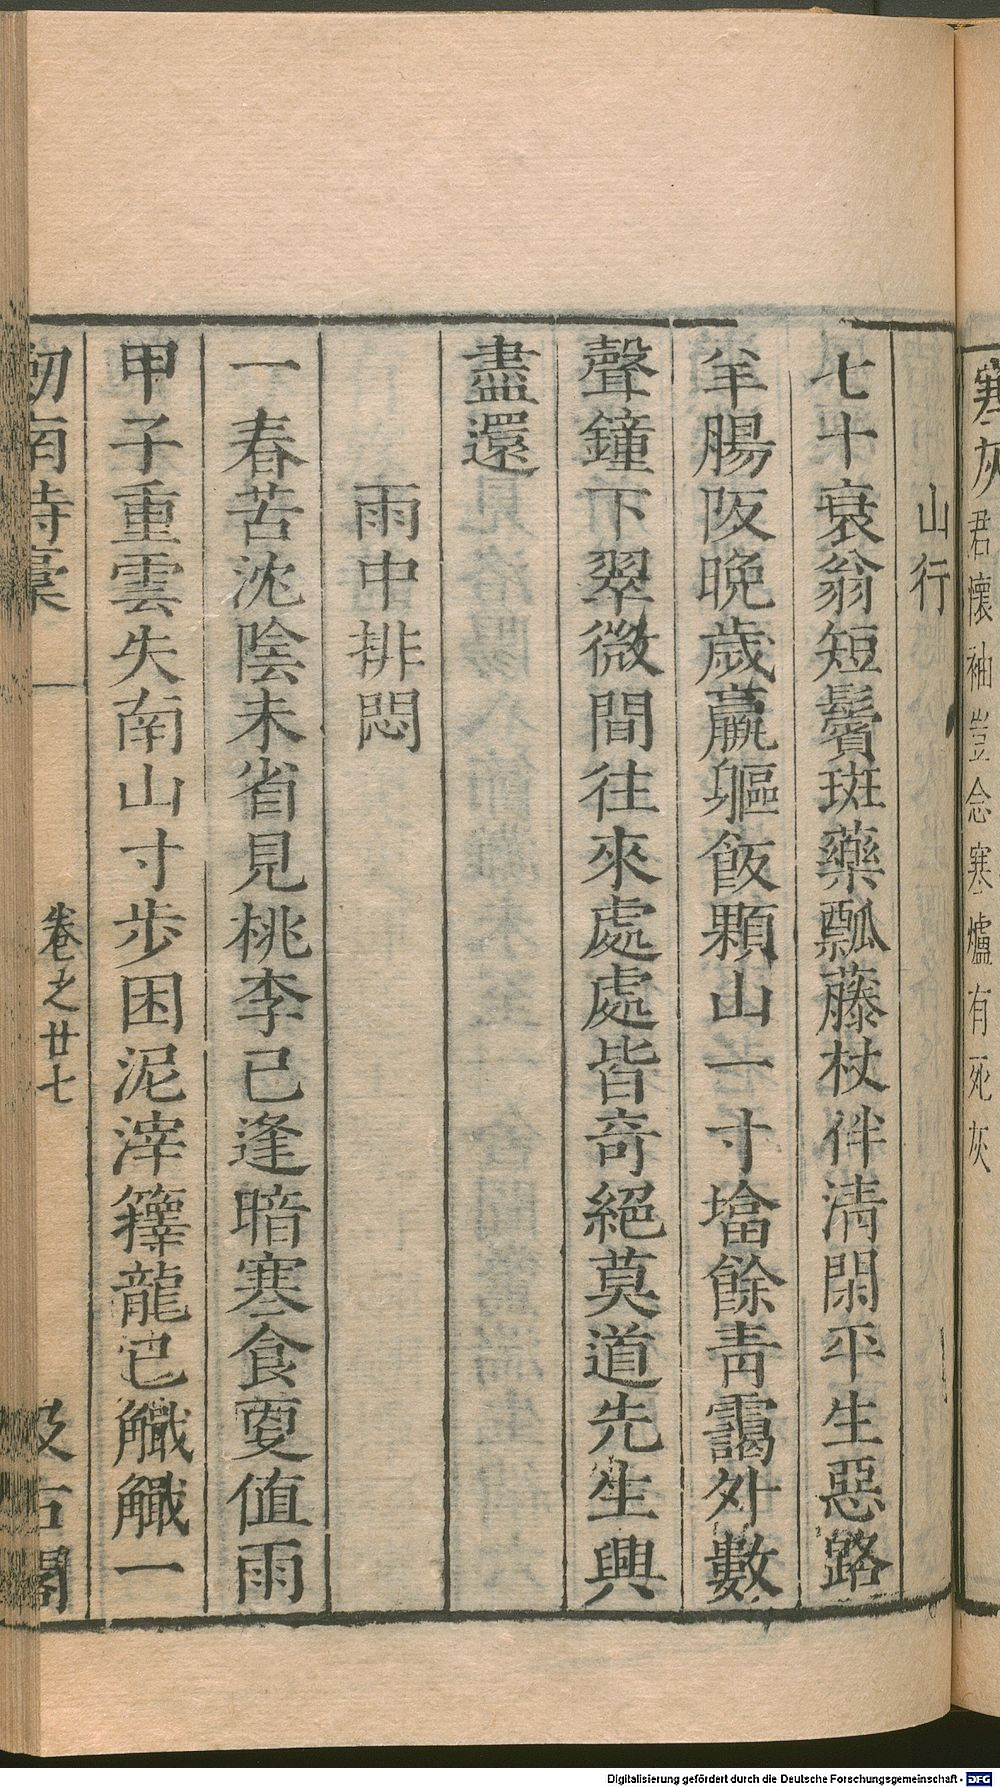 寒灰君懷袖豈念寒爐有死灰
山行
七十衰翁短鬢斑藥瓢藤杖伴清閑平生惡路
羊腸阪晩歲羸軀飯顆山一寸墖餘靑靄外數
聲鐘下翠微間往來處處皆奇絕莫道先生興
盡還
雨中排悶
一春苦沈陰未省見桃李已逢暗寒食更值雨
甲子重雲失南山寸步困泥滓籜龍已觿觿一
劒南詩稾 卷之廿七 汲古閣
Digitalisierung gefördert durch die Deutsche Forschungsgemeinschaft - DFG